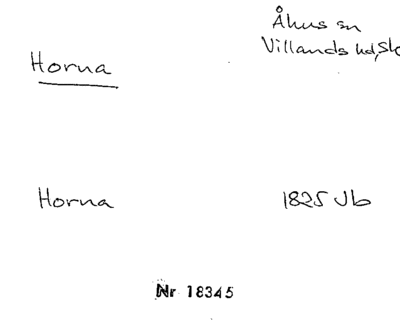 Åhus sn
Villands hd, Sk
Horna
Horna 1825 Jb
Nr 18345